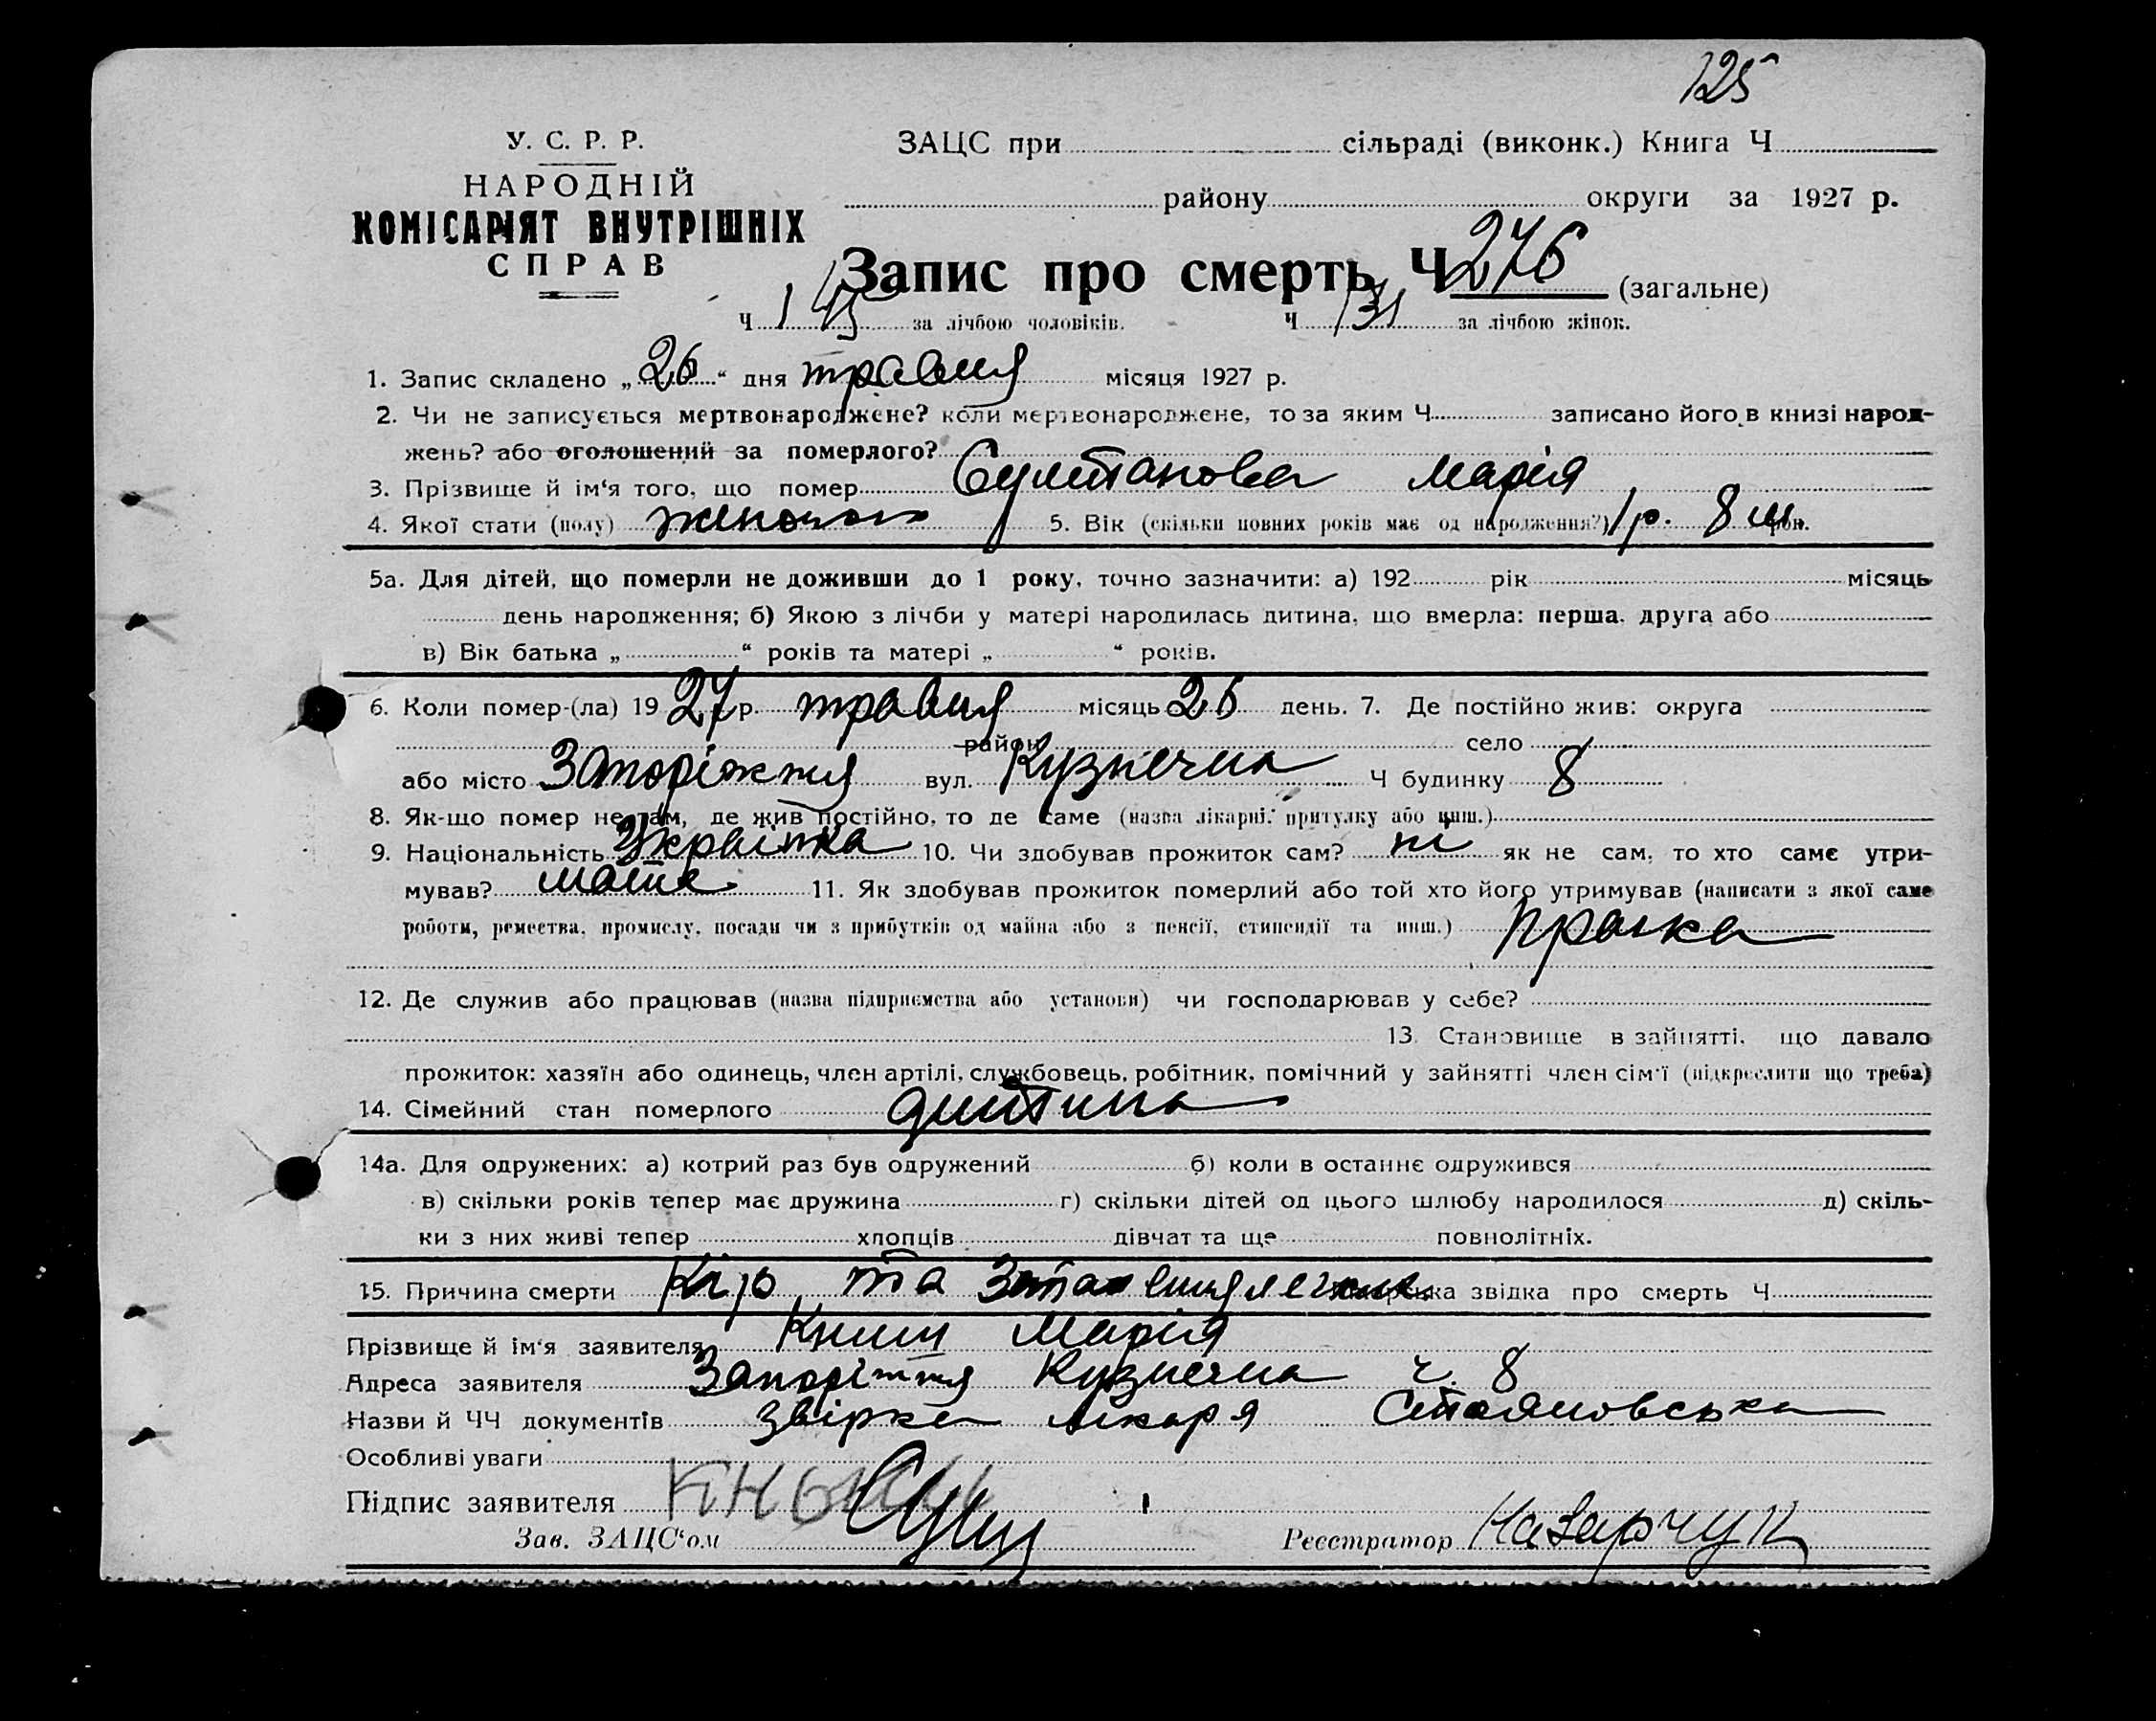 125
У. С. Р. Р.
НАРОДНІЙ
КОМІСАРІЯТ ВНУТРІШНІХ
СПРАВ
ЗАЦС при сільраді (виконк.) Книга Ч
району округи за 1927 р.
Запис про смерть Ч 276 (загальне)
Ч 145 за лічбою чоловіків. Ч 131 за лічбою жінок.
1. Запис складено „26“ дня травня місяця 1927 р.
2. Чи не записується мертвонароджене? коли мертвонароджене, то за яким Ч записано його в книзі народ-
жень? або оголошений за померлого?
3. Прізвище й ім‘я того, що помер Султанова Марія
4. Якої стати (полу) 5. Вік (скільки повних років має од народження?) 1 р. 8 м. рок.
5а. Для дітей, що померли не доживши до 1 року, точно зазначити: а) 192 рік місяць
день народження; б) Якою з лічби у матері народилась дитина, що вмерла: перша, друга або
в) Вік батька „ “ років та матері „ “ років.
6. Коли помер-(ла) 1927 р. травня місяць 26 день. 7. Де постійно жив: округа
район село
або місто Запоріжжя вул. Кузнечна Ч будинку 8
8. Як-що помер не там, де жив постійно, то де саме (назва лікарні, притулку або инш.)
9. Національність Українка 10. Чи здобував прожиток сам? ні як не сам, то хто саме утри-
мував? мати 11. Як здобував прожиток померлий або той хто його утримував (написати з якої саме
роботи, ремества, промислу, посади чи з прибутків од майна або з пенсії, стипендії та инш.) прачка
12. Де служив або працював (назва підприємства або установи) чи господарював у себе?
13. Становище в зайнятті, що давало
прожиток: хазяїн або одинець, член артілі, службовець, робітник, помічний у зайнятті член сім‘ї (підкреслити що треба)
14. Сімейний стан померлого дитина
14а. Для одружених: а) котрий раз був одружений б) коли в останнє одружився
в) скільки років тепер має дружина г) скільки дітей од цього шлюбу народилося д) скіль-
ки з них живі тепер хлопців дівчат та ще повнолітніх.
15. Причина смерти Кір та запалення легких звідка про смерть Ч
Прізвище й ім‘я заявителя Книш Марія
Адреса заявителя Запоріжжя Кузнечна ч. 8
Назви й ЧЧ документів звірка лікаря Стояновська
Особливі уваги
Підпис заявителя
Зав. ЗАЦС‘ом Реєстратор Назарчук